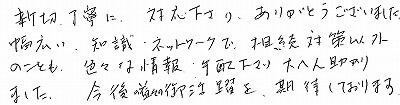 親切、丁寧に、対応下さり、ありがとうございました
幅広い、知識・ネットワークで、相続対策以外
のことも、色々な情報・手配下さり大へん助かり
ました。今後の益々の御活躍を、期待しております